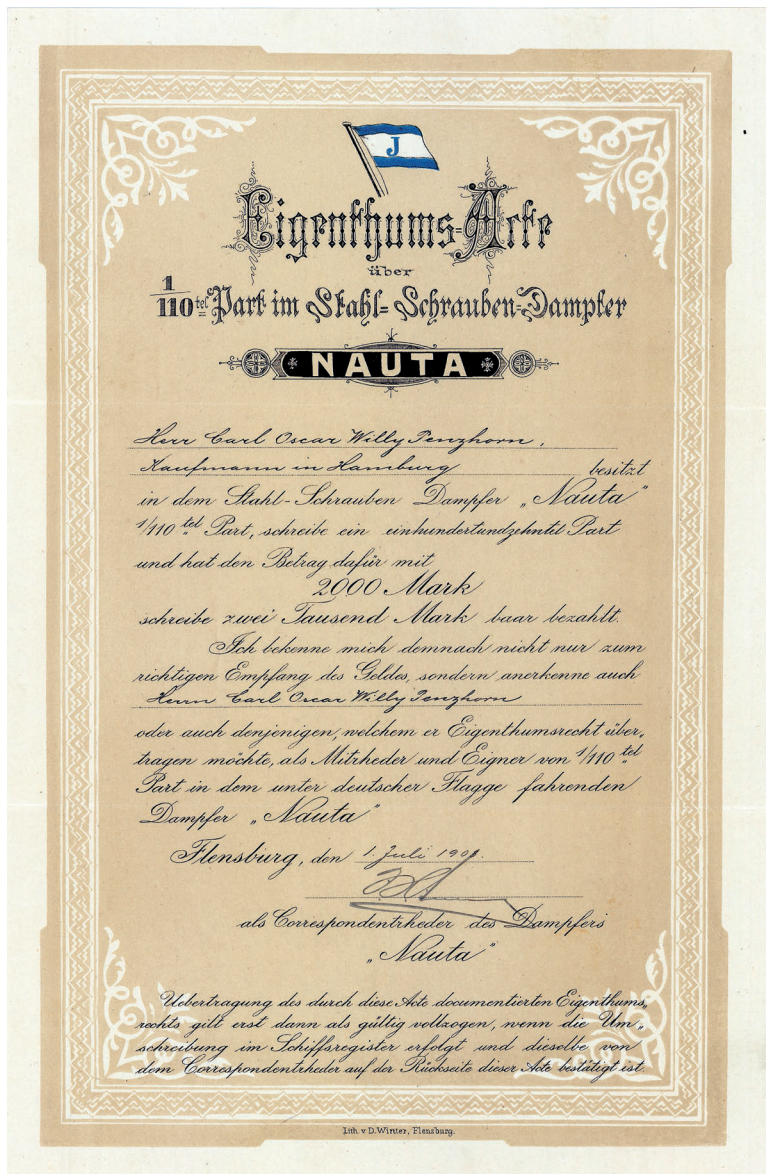 J
Eigenthums-Acte
über
1/110 tel Part im Stahl-Schrauben-Dampfer
NAUTA
Herr Carl Oscar Willy Penzhorn,
Kaufmann in Hamburg besitzt
in dem Stahl-Schrauben Dampfer „Nauta"
1/110 tel Part, schreibe ein einhundertundzehntel Part
und hat den Betrag dafür mit
2000 Mark
schreibe zwei Tausend Mark baar bezahlt.
Ich bekenne mich demnach nicht nur zum
richtigen Empfang des Geldes, sondern anerkenne auch
Herrn Carl Oscar Willy Penzhorn
oder auch denjenigen, welchem er Eigenthumsrecht über-
tragen möchte, als Mitrheder und Eigner von 1/110 tel
Part in dem unter deutscher Flagge fahrenden
Dampfer „Nauta"
Flensburg, den 1. Juli
als Correspondentrheder des Dampfers
„Nauta"
Uebertragung des durch diese Acte documentierten Eigenthums-
rechts gilt erst dann als gültig vollzogen, wenn die Um-
schreibung im Schiffsregister erfolgt und dieselbe von
dem Correspondentrheder auf der Rückseite dieser Acte bestätigt ist.
Lith. v. D. Winter, Flensburg.